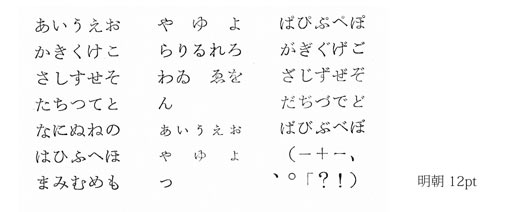 あいうえお
かきくけこ
さしすせそ
たちつてと
なにぬねの
はひふへほ
まみむめも
や ゆ よ
らりるれろ
わゐ ゑを
ん
ぁぃぅぇぉ
ゃ ゅ ょ
っ
ぱぴぷぺぽ
がぎぐげご
ざじずぜぞ
だぢづでど
ばびぶべぼ
（－＋ー、
、°「？！）
明朝 12pt